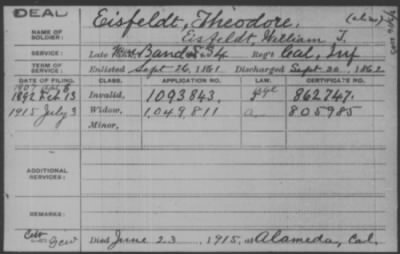 DEAL
Eisfeldt, Theodore. (alias)
NAME OF SOLDIER: Eisfeldt, William T.
SERVICE: Late Band 3 & 4 Reg't Cal. Inf
TERM OF SERVICE: Enlisted Sept 26, 1861 Discharged Sept 20, 1862
DATE OF FILING. CLASS. APPLICATION NO. CERTIFICATE NO.
1907
1892 Feb 13 Invalid, 1093843. 862747.
1915 July 3 Widow, 1,049,811 a. 805985
Minor,
ADDITIONAL SERVICES:
REMARKS:
Died June 23, 1915, at Alameda, Cal.